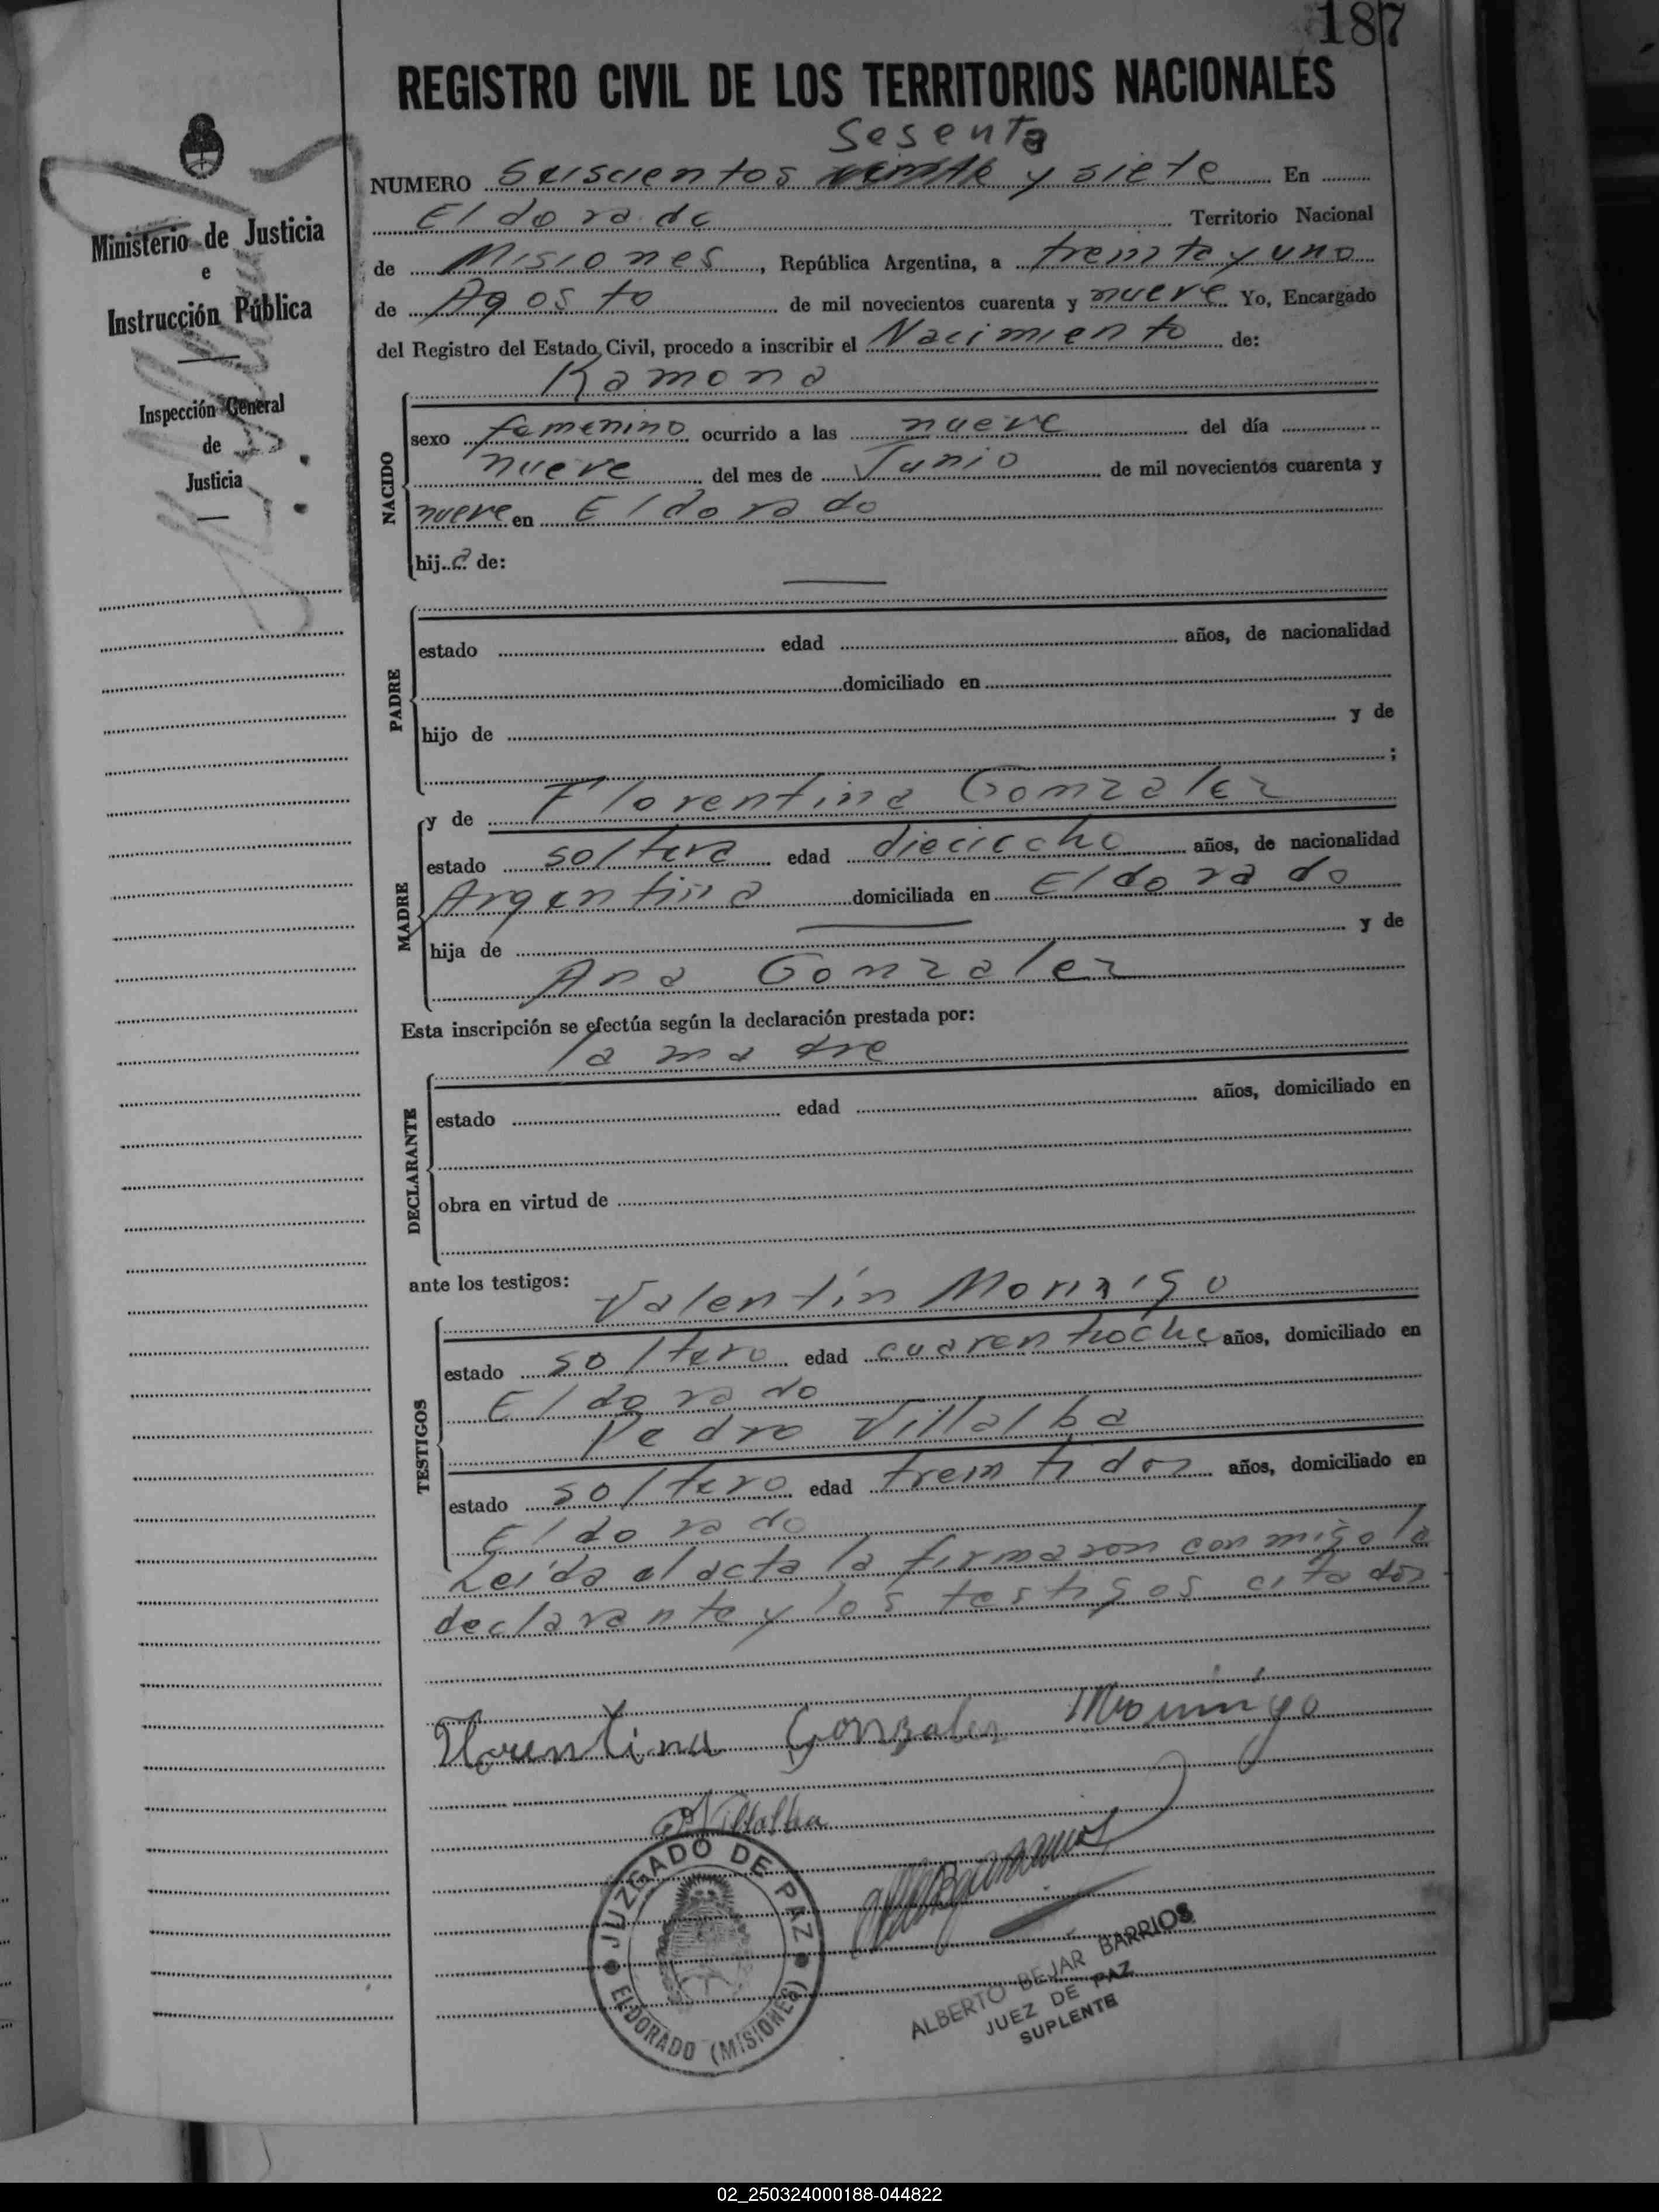 187
REGISTRO CIVIL DE LOS TERRITORIOS NACIONALES
Sesenta
NUMERO Seiscientos veinte y siete En
Eldorado Territorio Nacional
de Misiones, República Argentina, a treinta y uno
de Agosto de mil novecientos cuarenta y nueve Yo, Encargado
del Registro del Estado Civil, procedo a inscribir el Nacimiento de:
Ministerio de Justicia
e
Instrucción Pública
Inspección General
de
Justicia
NACIDO
Ramona
sexo femenino ocurrido a las nueve del día
nueve del mes de Junio de mil novecientos cuarenta y
nueve en Eldorado
hija de:
PADRE
estado edad años, de nacionalidad
domiciliado en
hijo de y de
;
MADRE
y de Florentina Gonzalez
estado soltera edad dieciocho años, de nacionalidad
Argentina domiciliada en Eldorado
hija de y de
Ana Gonzalez
Esta inscripción se efectúa según la declaración prestada por:
la madre
DECLARANTE
estado edad años, domiciliado en
obra en virtud de
ante los testigos:
TESTIGOS
Valentin Morinigo
estado soltero edad cuarentiocho años, domiciliado en
Eldorado
Pedro Villalba
estado soltero edad treintidos años, domiciliado en
Eldorado
Leida el acta la firmaron conmigo la
declarante y los testigos citados
Florentina Gonzalez Morinigo
P. Villalba
JUZGADO DE PAZ
ELDORADO (MISIONES)
ALBERTO BEJAR BARRIOS
JUEZ DE PAZ
SUPLENTE
02_250324000188-044822